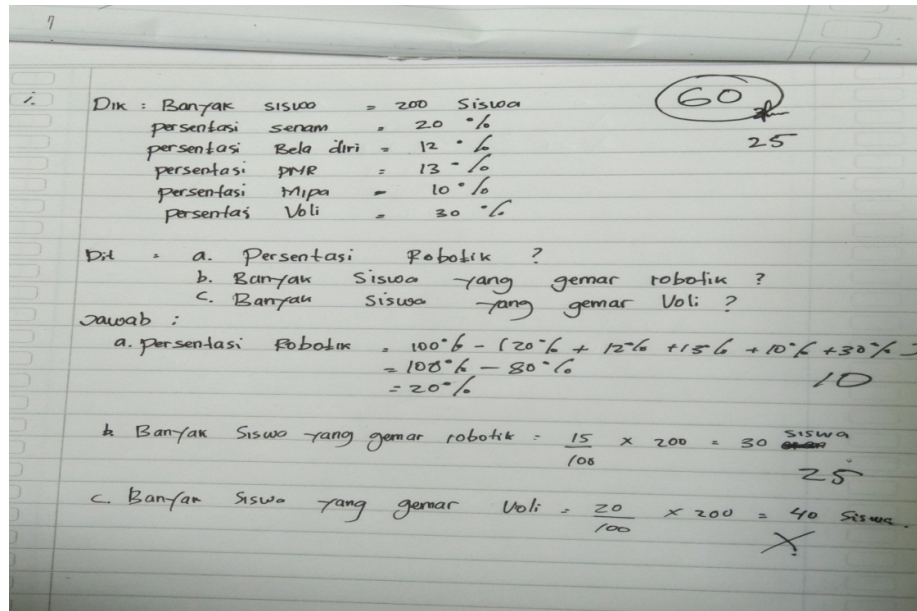 7
1.
Dik : Banyak siswa = 200 Siswa
persentasi senam = 20 %
persentasi Bela diri = 12 %
persentasi PMR = 13 %
persentasi Mipa = 10 %
persentas Voli = 30 %
60
25
Dit = a. Persentasi Robotik ?
b. Banyak Siswa yang gemar robotik ?
c. Banyak Siswa yang gemar Voli ?
Jawab :
a. persentasi Robotik = 100% - (20% + 12% + 13% + 10% + 30%)
= 100% - 80%
= 20%
10
b Banyak Siswa yang gemar robotik = 15/100 x 200 = 30 siswa
25
c. Banyak Siswa yang gemar Voli = 20/100 x 200 = 40 Siswa.
X